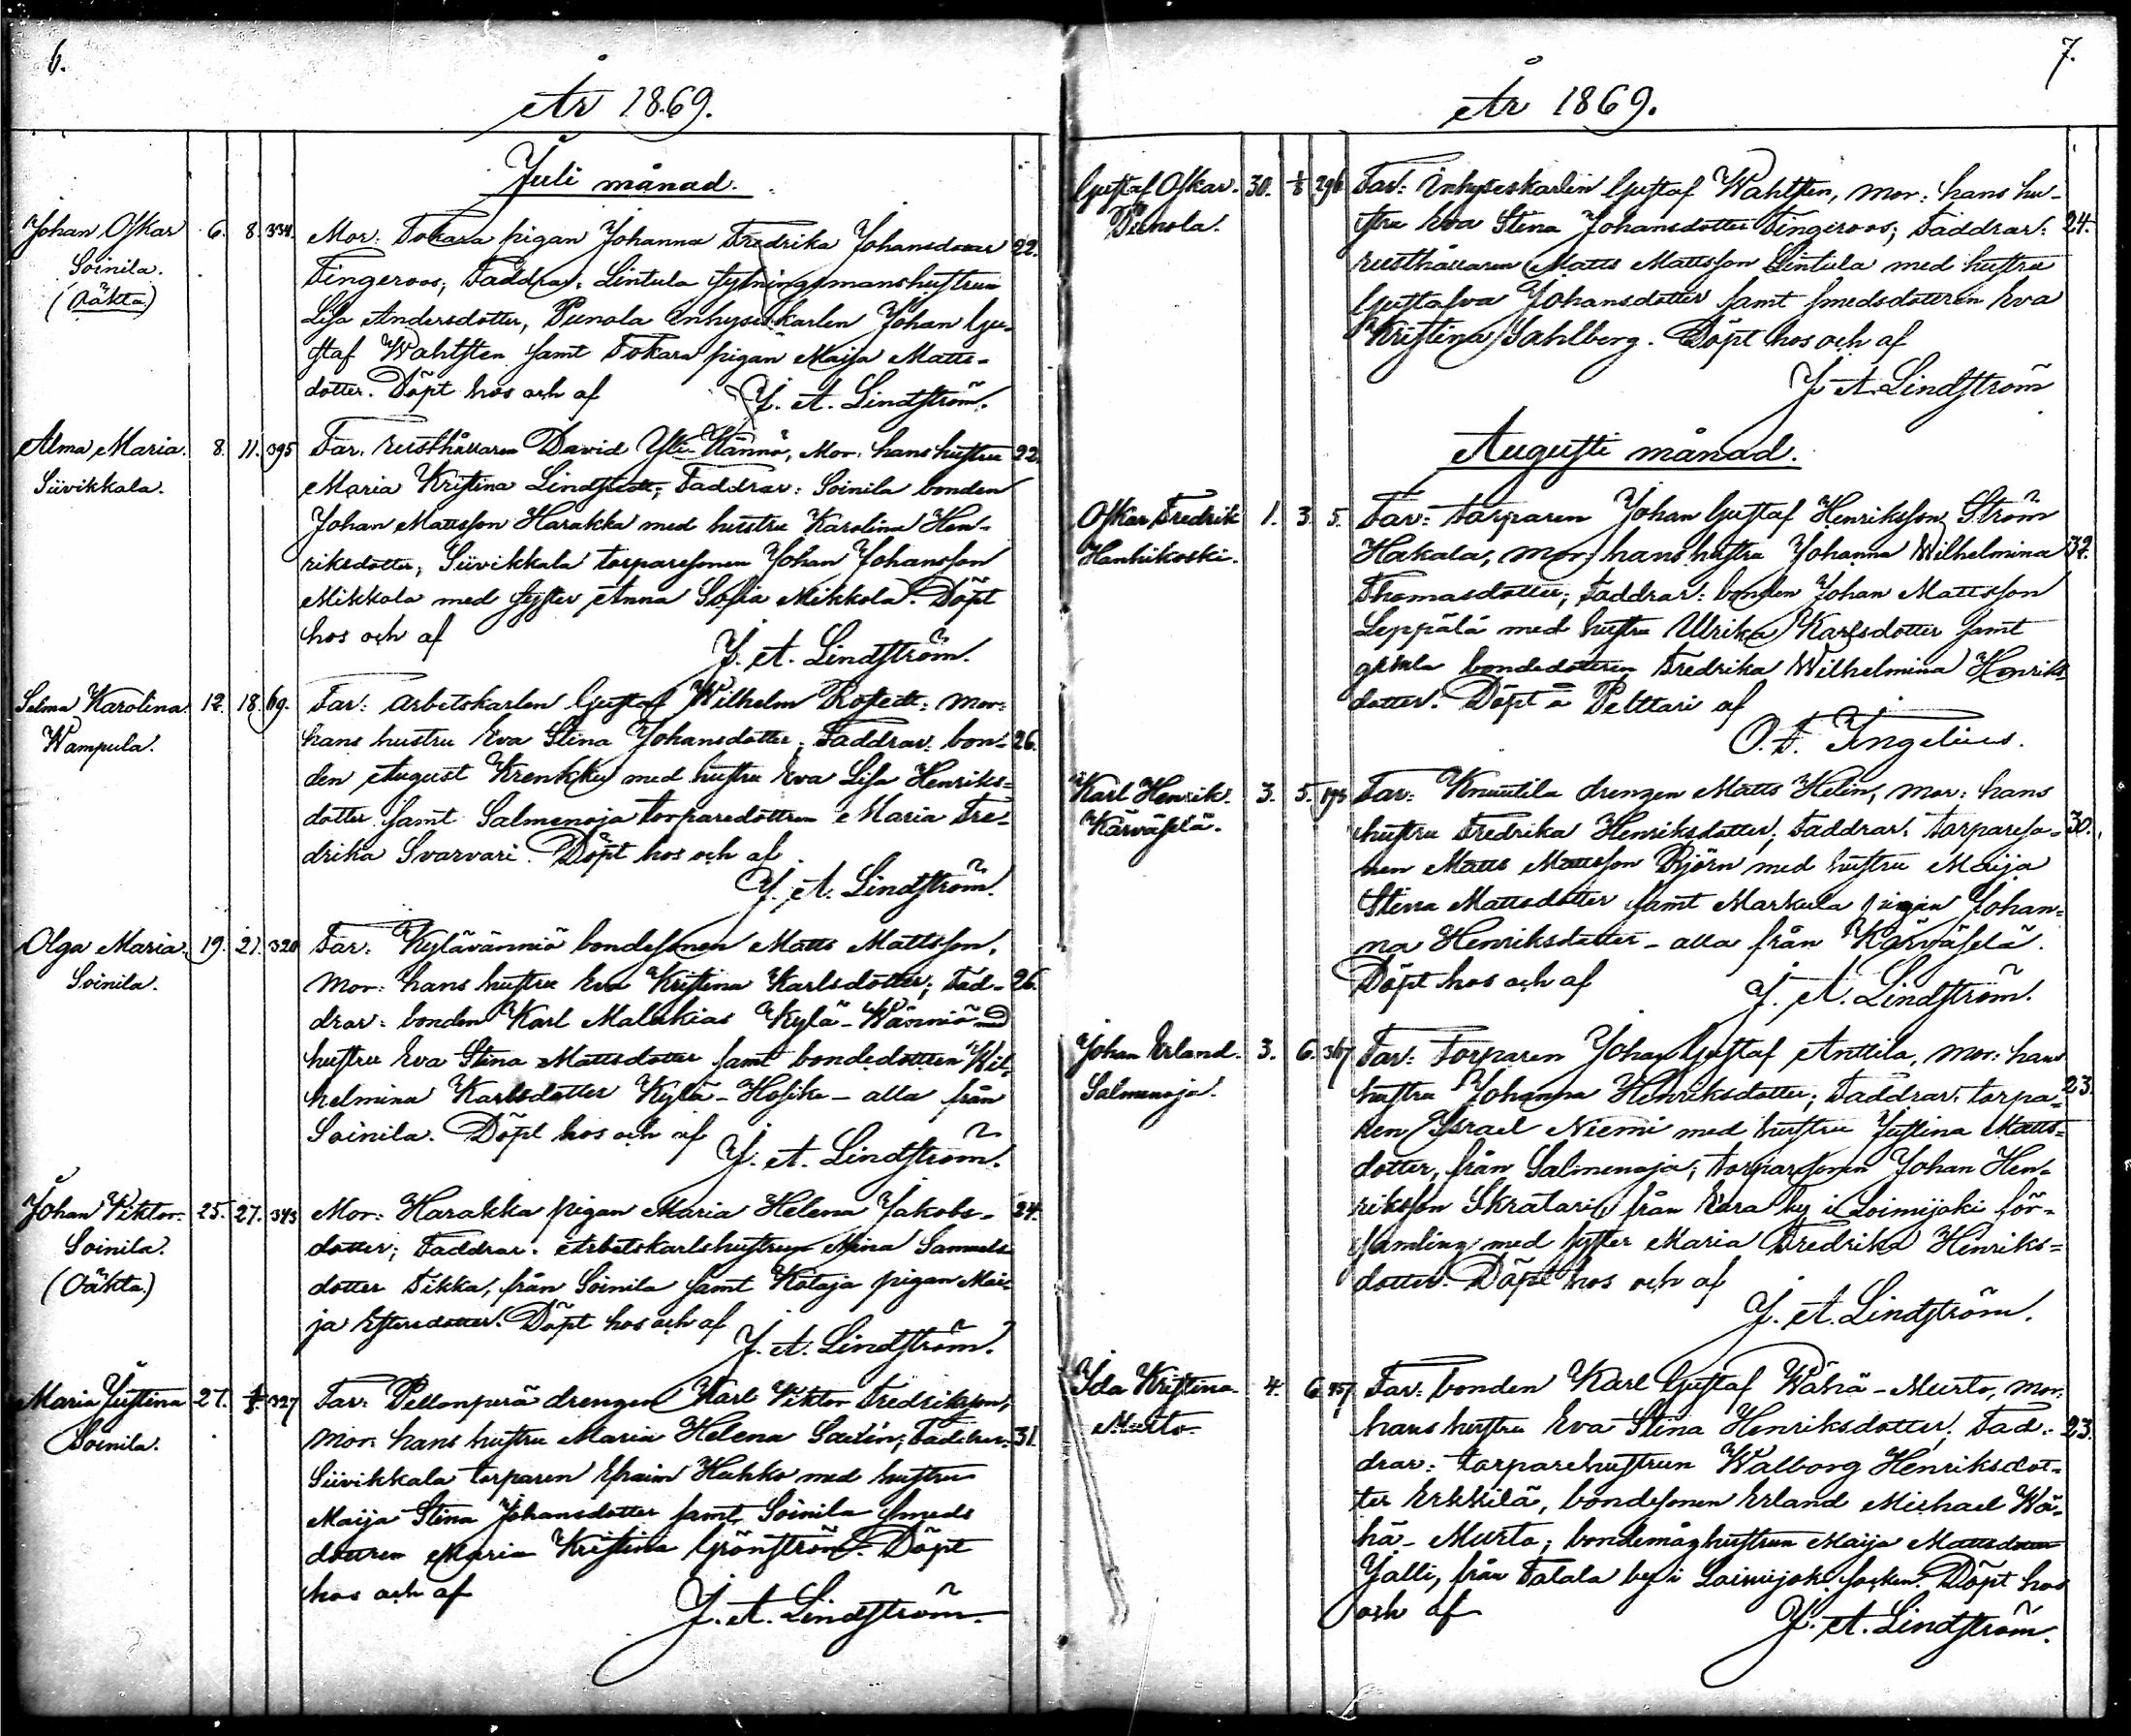 6.
År 1869.
Juli månad.
Johan Oskar 6. 8. 334. Mor: Tokara pigan Johanna Fredrika Johansdotter 22.
Soinila. Fingeroos; Faddrar: Lintula fjerdingsmanshustrun
(Oäkta) Lisa Andersdotter, Punola inhyseskarlen Johan Gu-
staf Wahlsten samt Tokara pigan Maija Matts-
dotter. Döpt hos och af J. A. Lindström.
Alma Maria. 8. 11. 395 Far: rusthållaren David Yli-Männö, Mor: hans hustru 22.
Siivikkala. Maria Kristina Lindstedt; Faddrar: Soinila bonden
Johan Mattsson Harakka med hustru Karolina Hen-
riksdotter, Siivikkala torparesonen Johan Johansson
Mikkola med syster Anna Sofia Mikkola. Döpt
hos och af J. A. Lindström.
Selma Karolina. 12. 18. 69. Far: arbetskarlen Gustaf Wilhelm Rostedt; mor:
Wampula. hans hustru Eva Stina Johansdotter; Faddrar: bon- 26.
den August Krenkku med hustru Eva Lisa Henriks-
dotter samt Salmenoja torparedottren Maria Fre-
drika Svarvari. Döpt hos och af
J. A. Lindström.
Olga Maria. 19. 21. 320 Far: Kylävänniö bondesonen Matts Mattsson,
Soinila. mor: hans hustru Eva Kristina Karlsdotter; Fad- 26.
drar: bonden Karl Malakias Kylä-Wänniö med
hustru Eva Stina Mattsdotter samt bondedottren Wil-
helmina Karlsdotter Kylä-Hosike - alla från
Soinila. Döpt hos och af J. A. Lindström.
Johan Viktor. 25. 27. 343 Mor: Harakka pigan Maria Helena Jakobs- 24.
Soinila. dotter; Faddrar: Arbetskarlshustrun Mina Samuels-
(Oäkta.) dotter Tikka, från Soinila samt Kataja pigan Mai-
ja Estersdotter. Döpt hos och af
J. A. Lindström.
Maria Justina 27. 1/8. 327 Far: Pellonperä drengen Karl Viktor Fredriksson,
Soinila. mor: hans hustru Maria Helena Saxlin; Faddrar: 31.
Siivikkala torparen Efraim Hukko med hustru
Maija Stina Johansdotter samt Soinila smeds
dottren Maria Kristina Grönström. Döpt
hos och af J. A. Lindström.
7.
År 1869.
Gustaf Oskar. 30. 1/8 296 Far: Inhyseskarlen Gustaf Wahlsten, mor: hans hu-
Punola. stru Eva Stina Johansdotter Fingeroos; Faddrar: 24.
rusthållaren Matts Mattsson Lintula med hustru
Gustafva Johansdotter samt smedsdottren Eva
Kristina Sahlberg. Döpt hos och af
J. A. Lindström
Augusti månad.
Oskar Fredrik 1. 3. 5. Far: torparen Johan Gustaf Henriksson Ström
Hanhikoski. Hakala, mor: hans hustru Johanna Wilhelmina 32.
Thomasdotter; Faddrar: bonden Johan Mattsson
Leppälä med hustru Ulrika Karlsdotter samt
bondedottren Fredrika Wilhelmina Henriks-
dotter. Döpt å Pelttari af
O. F. Ingelius.
Karl Henrik. 3. 5. Far: Knuutila drengen Matts Helin, mor: hans
Karväselä. hustru Fredrika Henriksdotter; Faddrar: torpareso- 30.
nen Matts Mattsson Björn med hustru Maija
Stina Mattsdotter samt Markula pigan Johan-
na Henriksdotter - alla från Karväselä.
Döpt hos och af J. A. Lindström.
Johan Erland. 3. 6. 367 Far: Torparen Johan Gustaf Anttila, mor: hans
Salmenoja. hustru Johanna Henriksdotter; Faddrar: torpa- 23.
ren Israel Niemi med hustru Justina Matts-
dotter, från Salmenoja; torparesonen Johan Hen-
riksson Skratari från by i Loimijoki för-
samling med syster Maria Fredrika Henriks-
dotter. Döpt hos och af
J. A. Lindström.
Ida Kristina. 4. 6. 457 Far: bonden Karl Gustaf Wähä-Murto, mor:
Murto. hans hustru Eva Stina Henriksdotter; Fad- 23.
drar: torparehustrun Walborg Henriksdot-
ter Erkkilä, bondesonen Erland Michael Wä-
hä-Murto; bondemåghustrun Maija Mattsdotter
Jalli, från Tatala by i Loimijoki socken. Döpt hos
och af J. A. Lindström.